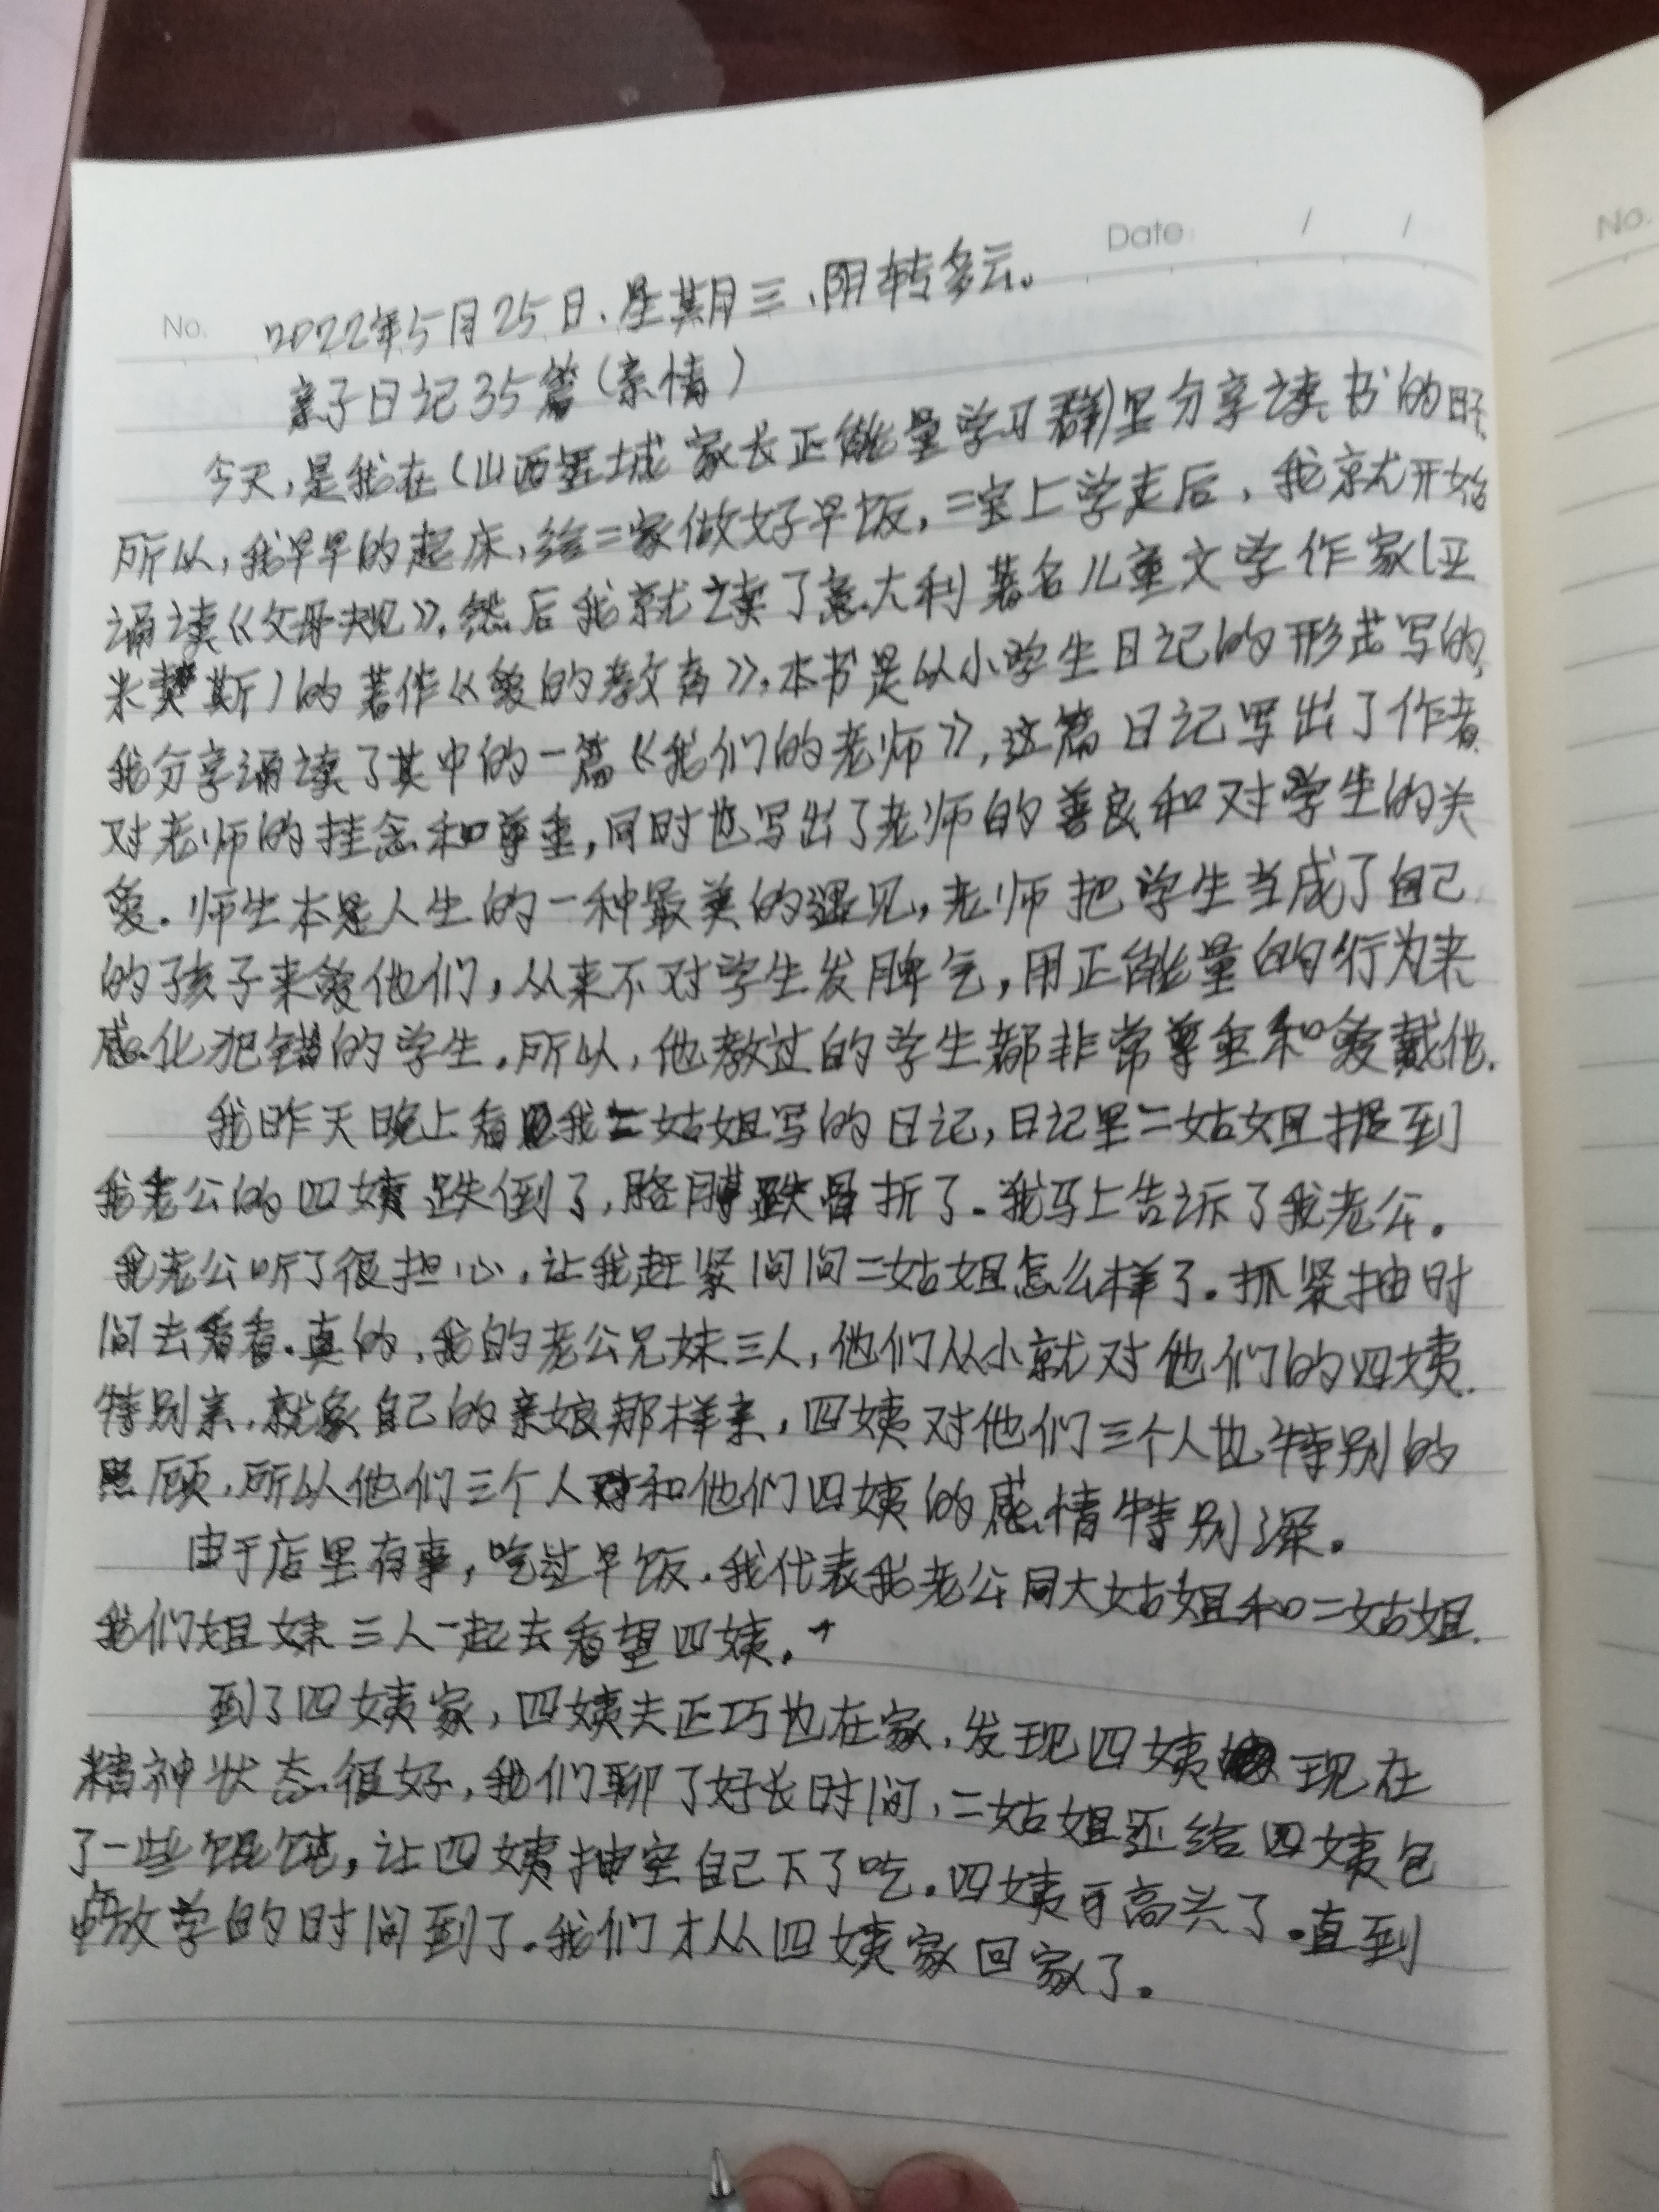 Date / /
No.
No.
2022年5月25日、星期三、阴转多云。
亲子日记35篇(亲情)
今天,是我在(山西垩城家长正能量学习群)里分享读书的日子
所以,我早早的起床,给二家做好早饭,二宝上学走后,我就开始
诵读《父母规》,然后我就读了意大利著名儿童文学作家(亚
米契斯)的著作《爱的教育》,本书是以小学生日记的形式写的,
我分享诵读了其中的一篇《我们的老师》,这篇日记写出了作者
对老师的挂念和尊重,同时也写出了老师的善良和对学生的关
爱.师生本是人生的一种最美的遇见,老师把学生当成了自己
的孩子来爱他们,从来不对学生发脾气,用正能量的行为来
感化犯错的学生.所以,他教过的学生都非常尊重和爱戴他.
我昨天晚上看见我二姑姐写的日记,日记里二姑姐提到
我老公的四姨跌倒了,胳膊跌骨折了.我马上告诉了我老公。
我老公听了很担心,让我赶紧问问二姑姐怎么样了.抓紧抽时
间去看看.真的,我的老公兄妹三人,他们从小就对他们的四姨
特别亲,就象自己的亲娘那样亲,四姨对他们三个人也特别的
照顾,所以他们三个人和他们四姨的感情特别深。
由于店里有事,吃过早饭,我代表我老公同大姑姐和二姑姐
我们姐妹三人一起去看望四姨.
到了四姨家,四姨夫正巧也在家,发现四姨现在
精神状态很好,我们聊了好长时间,二姑姐还给四姨包
了一些馄饨,让四姨抽空自己下了吃.四姨可高兴了.直到
放学的时间到了.我们才从四姨家回家了。